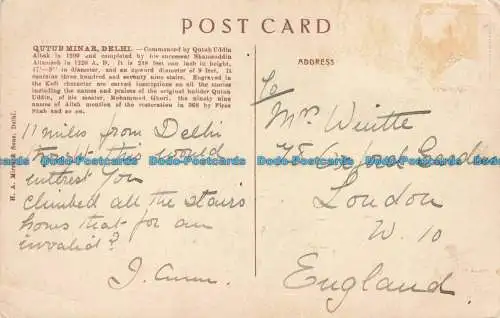 POST CARD
QUTUB MINAR, DELHI.—Commenced by Qutub Uddin
Aibak in 1200 and completed by his successor Shamsuddin
Altamash in 1220 A. D. It is 238 feet one inch in height,
in diameter, and an upward diameter of 9 feet. It
contains three hundred and seventy nine stairs. Engraved in
the Kufi character are carved inscriptions on all the stories
including the names and praises of the original builder Qutub
Uddin, of his master, Mohammed Ghori, the ninety nine
names of Allah mention of the restoration in 368 by Firoz
Shah and so on.
H. A. Mirza & Sons, Delhi.
11 miles from Delhi
thought this would
interest you
climbed all the stairs
hows that for an
invalid?
J.
ADDRESS
To
Mrs
75 Oxford Gardens
London
W. 10
England.
www.bidstart-postcards.co.uk